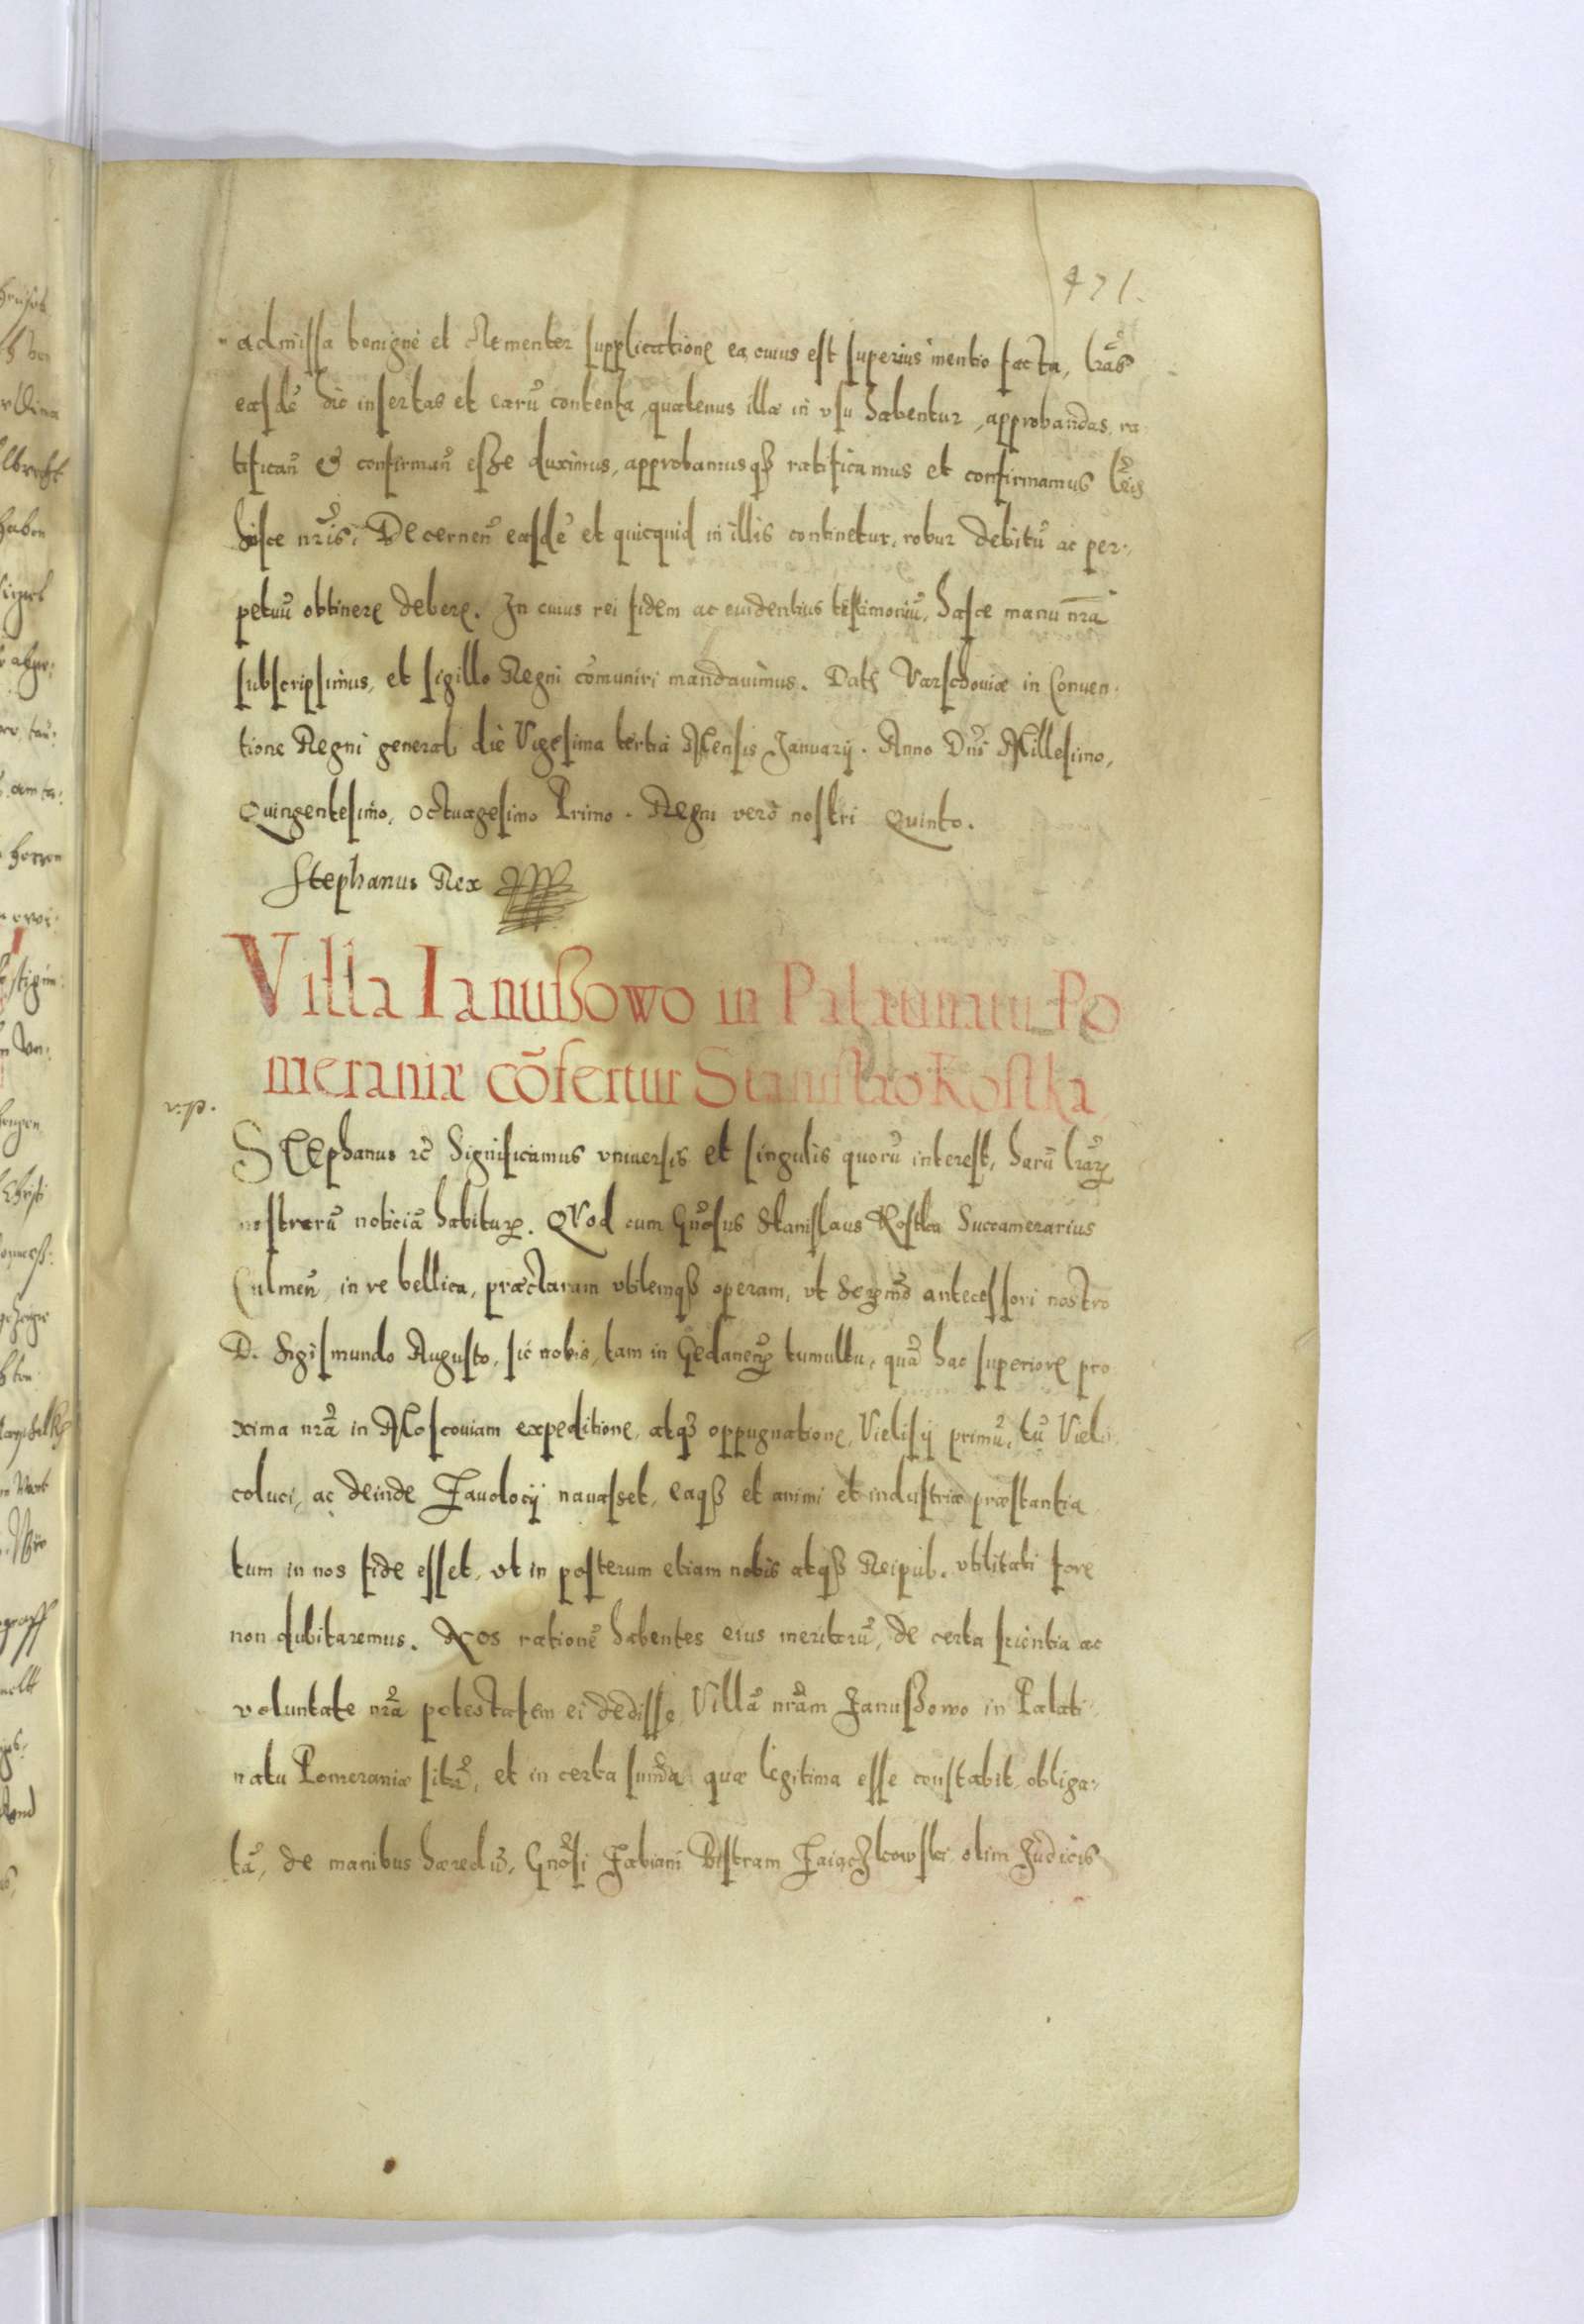 471.
admissa benignè et clementer supplicatione ea, cuius est superius mentio facta, lr̃as
easdẽ hic insertas et earũ contenta, quatenus illæ in vsu habentur, approbandas, ra
tifican̄ & confirman̄ esse duximus, approbamusqꝫ ratificamus et confirmamus
hisce nr̃is, Decernen̄ easdẽ et quicquid in illis continetur, robur debitũ ac per-
petuũ obtinere debere. In cuius rei fidem ac euidentius testimoniũ, hasce manu nr̃a
subscripsimus, et sigillo Regni cõmuniri mandauimus. Dat: Varschouiæ in Conuen-
tione Regni general: die Vigesima tertia Mensis Januarij. Anno Dñi Millesimo,
Quingentesimo, octuagesimo Primo. Regni verò nostri Quinto.
Stephanus Rex
Villa Ianußowo in Palatinatu Po
meraniæ cõfertur Stanislao Kostka
STEphanus ꝛc̃ Significamus vniuersis et singulis quorũ interest, harũ lr̃aꝝ
nostrarũ noticiã habituꝝ. QVod cum Gñosus Stanislaus Kostka Succamerarius
Culmen̄, in re bellica, præclaram vtilemqꝫ operam, vt Serꝫm̃o antecessori nostro
D. Sigismundo Augusto, sic nobis, tam in Gedanen̄ꝫ tumultu, quã hac superiore pro
xima nr̃a in Moscouiam expeditione, atqꝫ oppugnatione, Vielisij primũ, tũ Vieli
coluci, ac deinde Zauolocij nauasset, eaqꝫ et animi et industriæ præstantia
tum in nos fide esset, vt in posterum etiam nobis atqꝫ Reipub. vtilitati fore
non dubitaremus. Nos rationẽ habentes eius meritorũ, de certa scientia ac
voluntate nr̃a potestatem ei dedisse, Villã nr̃am Janußowo in Palati-
natu Pomeraniæ sitã, et in certa sum̃a quæ legitima esse constabit, obliga-
tã, de manibus hæredũ, Gñosi Fabiani Bistram Zaiączkowski olim Judicis